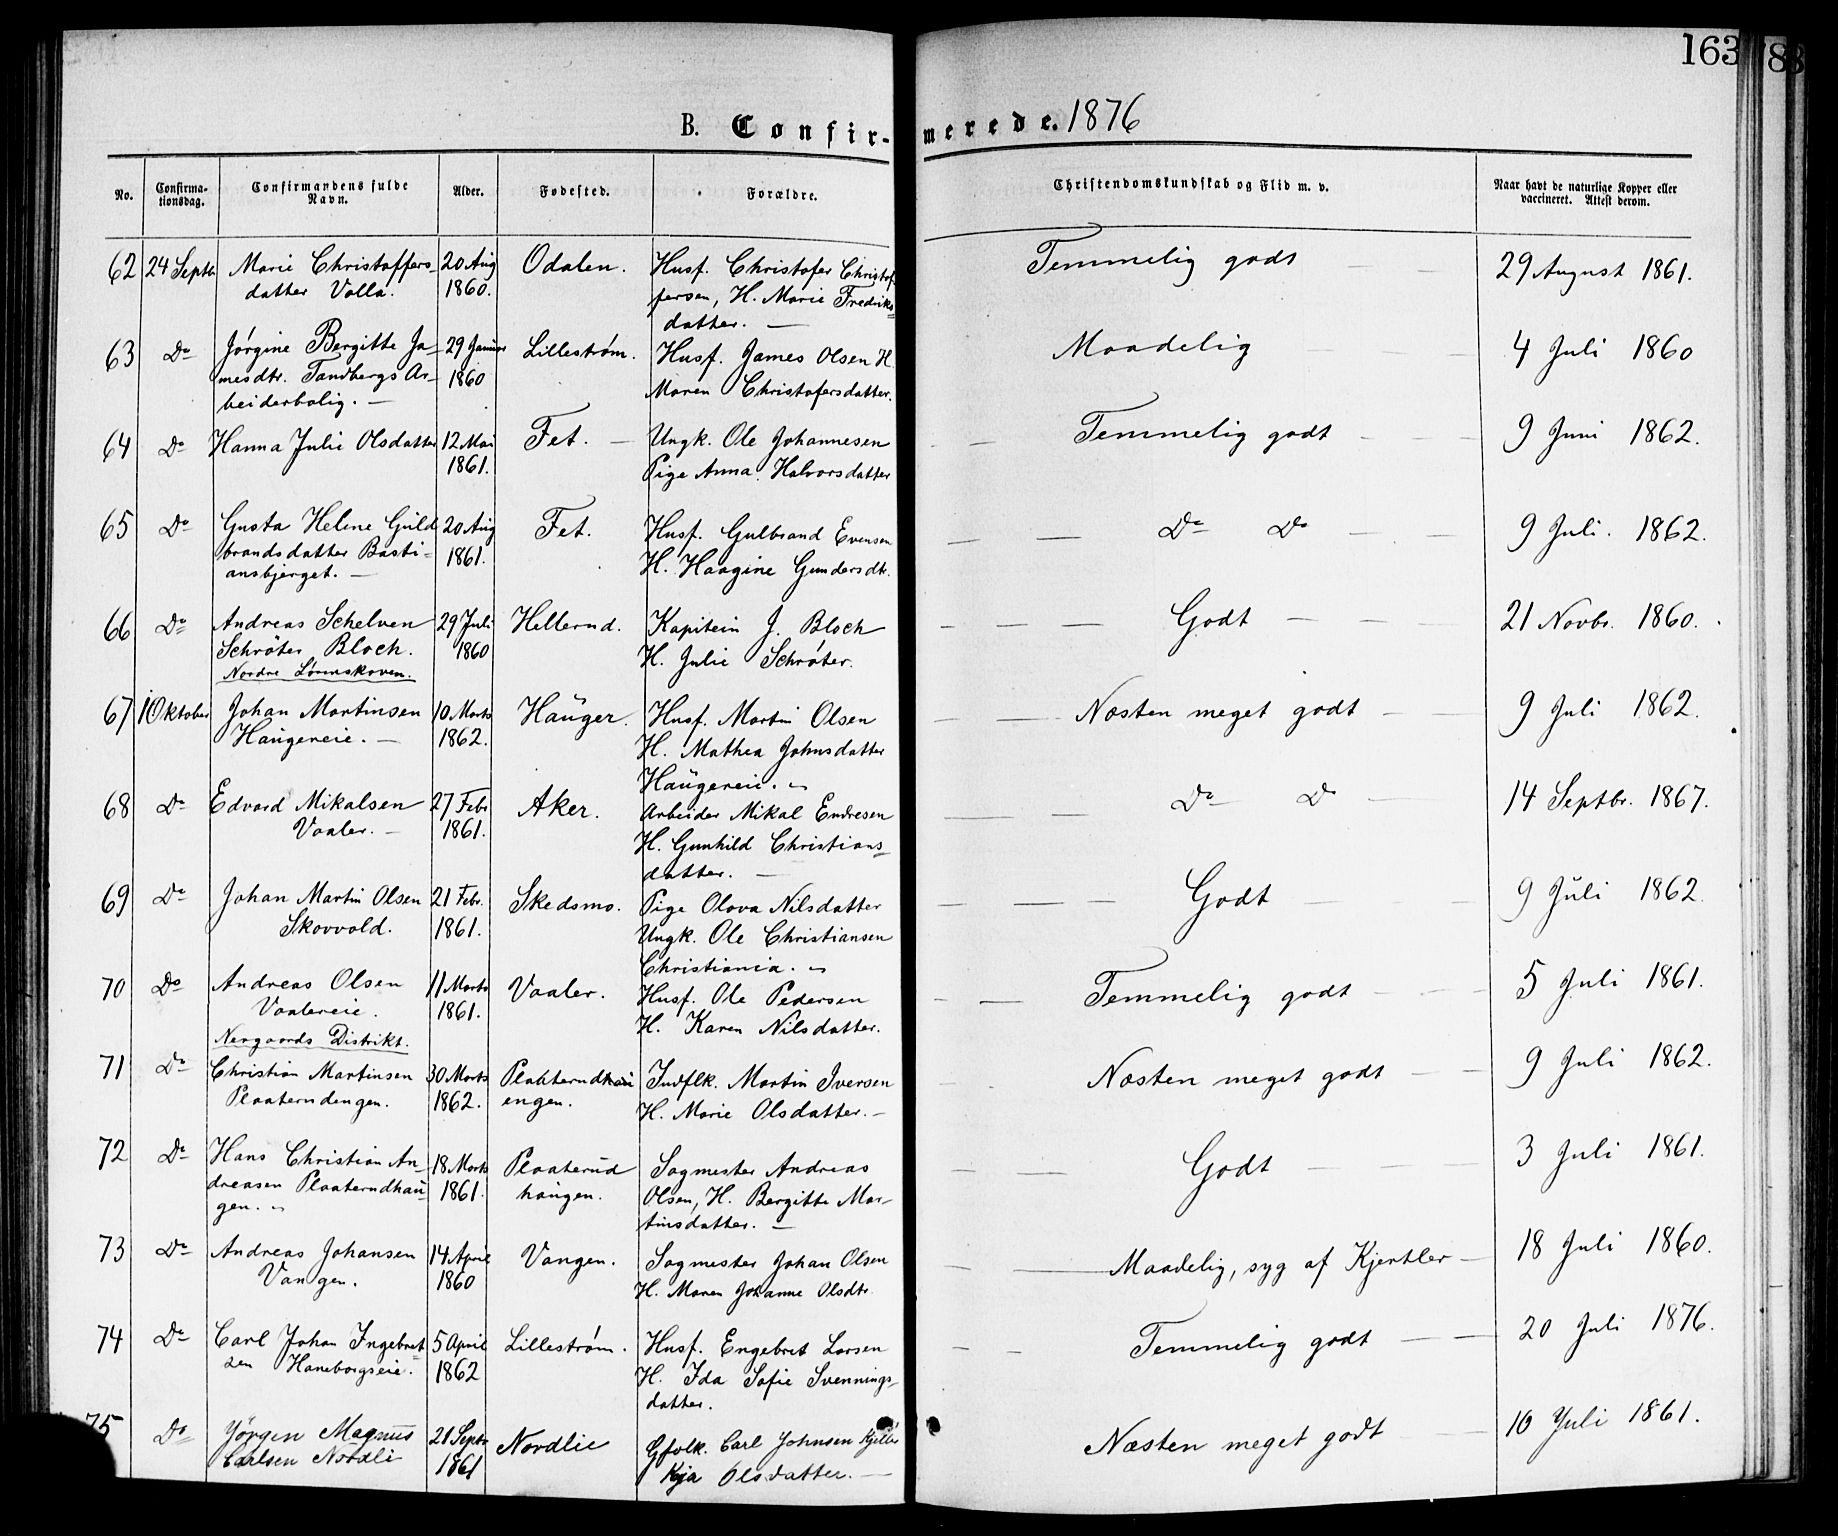 163
B. Confirmerede. 1876
No.
Confirmationsdag.
Confirmandens fulde Navn.
Alder.
Fødested.
Forældre.
Christendomskundskab og Flid m. v.
Naar havt de naturlige Kopper eller vaccineret. Attest derom.
62 24 Septb. Marie Christoffers- 20 Aug Odalen. Husf. Christofer Christof Temmelig godt 29 August 1861.
datter Volla. 1860. fersen, H. Marie Fredriks=
datter. —
63 Do Jørgine Bergitte Ja- 29 Januar Lillestrøm. Husf. James Olsen H. Maadelig 4 Juli 1860
mesdtr. Tandbergs Ar- 1860 Maren Christofersdatter.
beiderbolig. —
64 Do Hanna Julie Olsdatter 12 Mai Fet. — Ungk. Ole Johannesen Temmelig godt 9 Juni 1862.
1861. Pige Anna Halvorsdatter
65 Do Gusta Helene Guld 20 Aug Fet. Husf. Gulbrand Evensen Do Do 9 Juli. 1862.
brandsdatter Basti= 1861. H. Haagine Gundersdtr.
ansbjerget. —
66 Do Andreas Schelven 29 Juli Hellerud. Kapitein J. Bloch Godt 21 Novbr. 1860.
Schröter Bloch. 1860 H. Julie Schröter.
Nordre Lørenskoven.
67 1 Oktober Johan Martinsen 10 Marts Hauger. Husf. Martin Olsen Næsten meget godt 9 Juli 1862.
Haugereie. — 1862. H. Mathea Johnsdatter
Haugereie.
68 Do Edvard Mikalsen 27 Febr Aker. Arbeider Mikal Endresen Do Do 14 Septbr. 1867.
Vaaler. — 1861. H. Gunhild Christians=
datter. —
69 Do Johan Martin Olsen 21 Febr. Skedsmo. Pige Olava Nilsdatter Godt 9 Juli 1862.
Skovvold. 1861. Ungk. Ole Christiansen
Christiania.
70 Do Andreas Olsen 11 Marts Vaaler. Husf. Ole Pedersen Temmelig godt 5 Juli 1861.
Vaalereie. 1861. H. Karen Nilsdatter.
Nergaards Distrikt.
71 Do Christian Martinsen 30 Marts Plaaterud Indflk. Martin Iversen Næsten meget godt 9 Juli 1862.
Plaaterudengen. 1862. engen. H. Marie Olsdatter. —
72 Do Hans Christian An- 18 Marts Plaaterud Sagmester Andreas Godt 3 Juli 1861.
dreasen Plaaterudhau 1861. haugen. Olsen, H. Bergitte Mar-
gen. tinsdatter. —
73 Do Andreas Johansen 14 April Vangen. Sagmester Johan Olsen Maadelig, syg af Kjertler 18 Juli 1860.
Vangen. 1860 H. Maren Johanne Olsdtr.
74 Do Carl Johan Ingebret 5 April Lillestrøm. Husf. Engebret Larsen Temmelig godt 20 Juli 1876.
sen Haneborgseie. 1862 H. Ida Sofie Svennings-
datter.
75 Do Jörgen Magnus 21 Septr Nordlie Gfolk. Carl Johnsen Næsten meget godt 10 Juli 1861.
Carlsen Nordli 1861 Kja Olsdatter. —